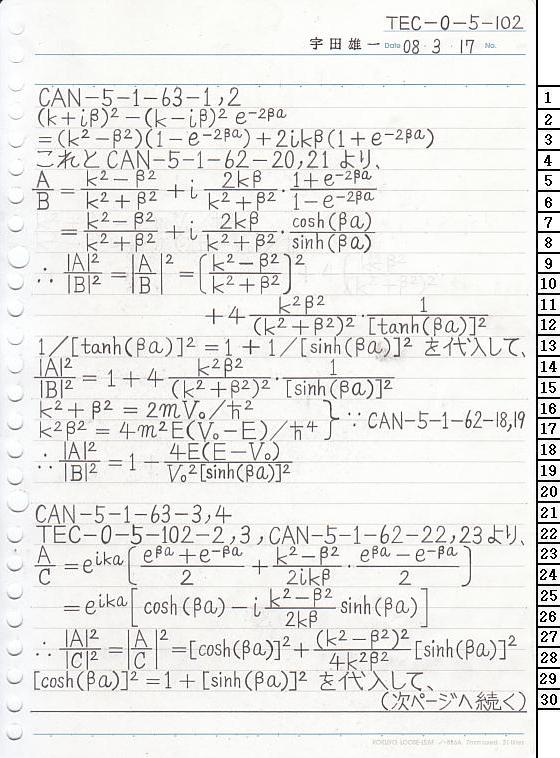 TEC-0-5-102
宇田雄一 Date 08・3・17 No.
CAN-5-1-63-1,2
(k+iβ)²-(k-iβ)² e^{-2βa}
=(k²-β²)(1-e^{-2βa})+2ikβ(1+e^{-2βa})
これと CAN-5-1-62-20,21 より、
A/B = (k²-β²)/(k²+β²) + i 2kβ/(k²+β²)・(1+e^{-2βa})/(1-e^{-2βa})
= (k²-β²)/(k²+β²) + i 2kβ/(k²+β²)・cosh(βa)/sinh(βa)
∴ |A|²/|B|² = |A/B|² = [(k²-β²)/(k²+β²)]²
+4 k²β²/(k²+β²)²・1/[tanh(βa)]²
1/[tanh(βa)]² = 1+1/[sinh(βa)]² を代入して、
|A|²/|B|² = 1+4 k²β²/(k²+β²)²・1/[sinh(βa)]²
k²+β² = 2mV₀/ħ²
k²β² = 4m²E(V₀-E)/ħ⁴ } ∵ CAN-5-1-62-18,19
∴ |A|²/|B|² = 1- 4E(E-V₀)/V₀²[sinh(βa)]²
CAN-5-1-63-3,4
TEC-0-5-102-2,3,CAN-5-1-62-22,23より、
A/C = e^{ika}[(e^{βa}+e^{-βa})/2 + (k²-β²)/2ikβ・(e^{βa}-e^{-βa})/2]
= e^{ika}[cosh(βa)-i (k²-β²)/2kβ sinh(βa)]
∴ |A|²/|C|² = |A/C|² = [cosh(βa)]²+ (k²-β²)²/4k²β² [sinh(βa)]²
[cosh(βa)]² = 1+[sinh(βa)]² を代入して、
(次ページへ続く)
1
2
3
4
5
6
7
8
9
10
11
12
13
14
15
16
17
18
19
20
21
22
23
24
25
26
27
28
29
30
KOKUYO LOOSE-LEAF